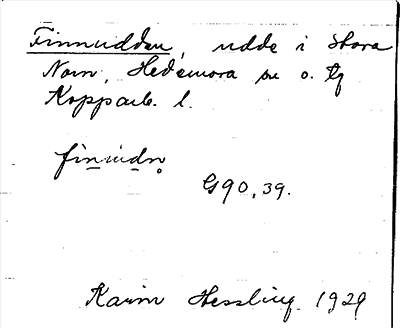 Finnudden, udde i Stora
Norn, Hedemora sn o. tg
Kopparb. l.
finudn
G90, 39.
Karin Hessling 1929